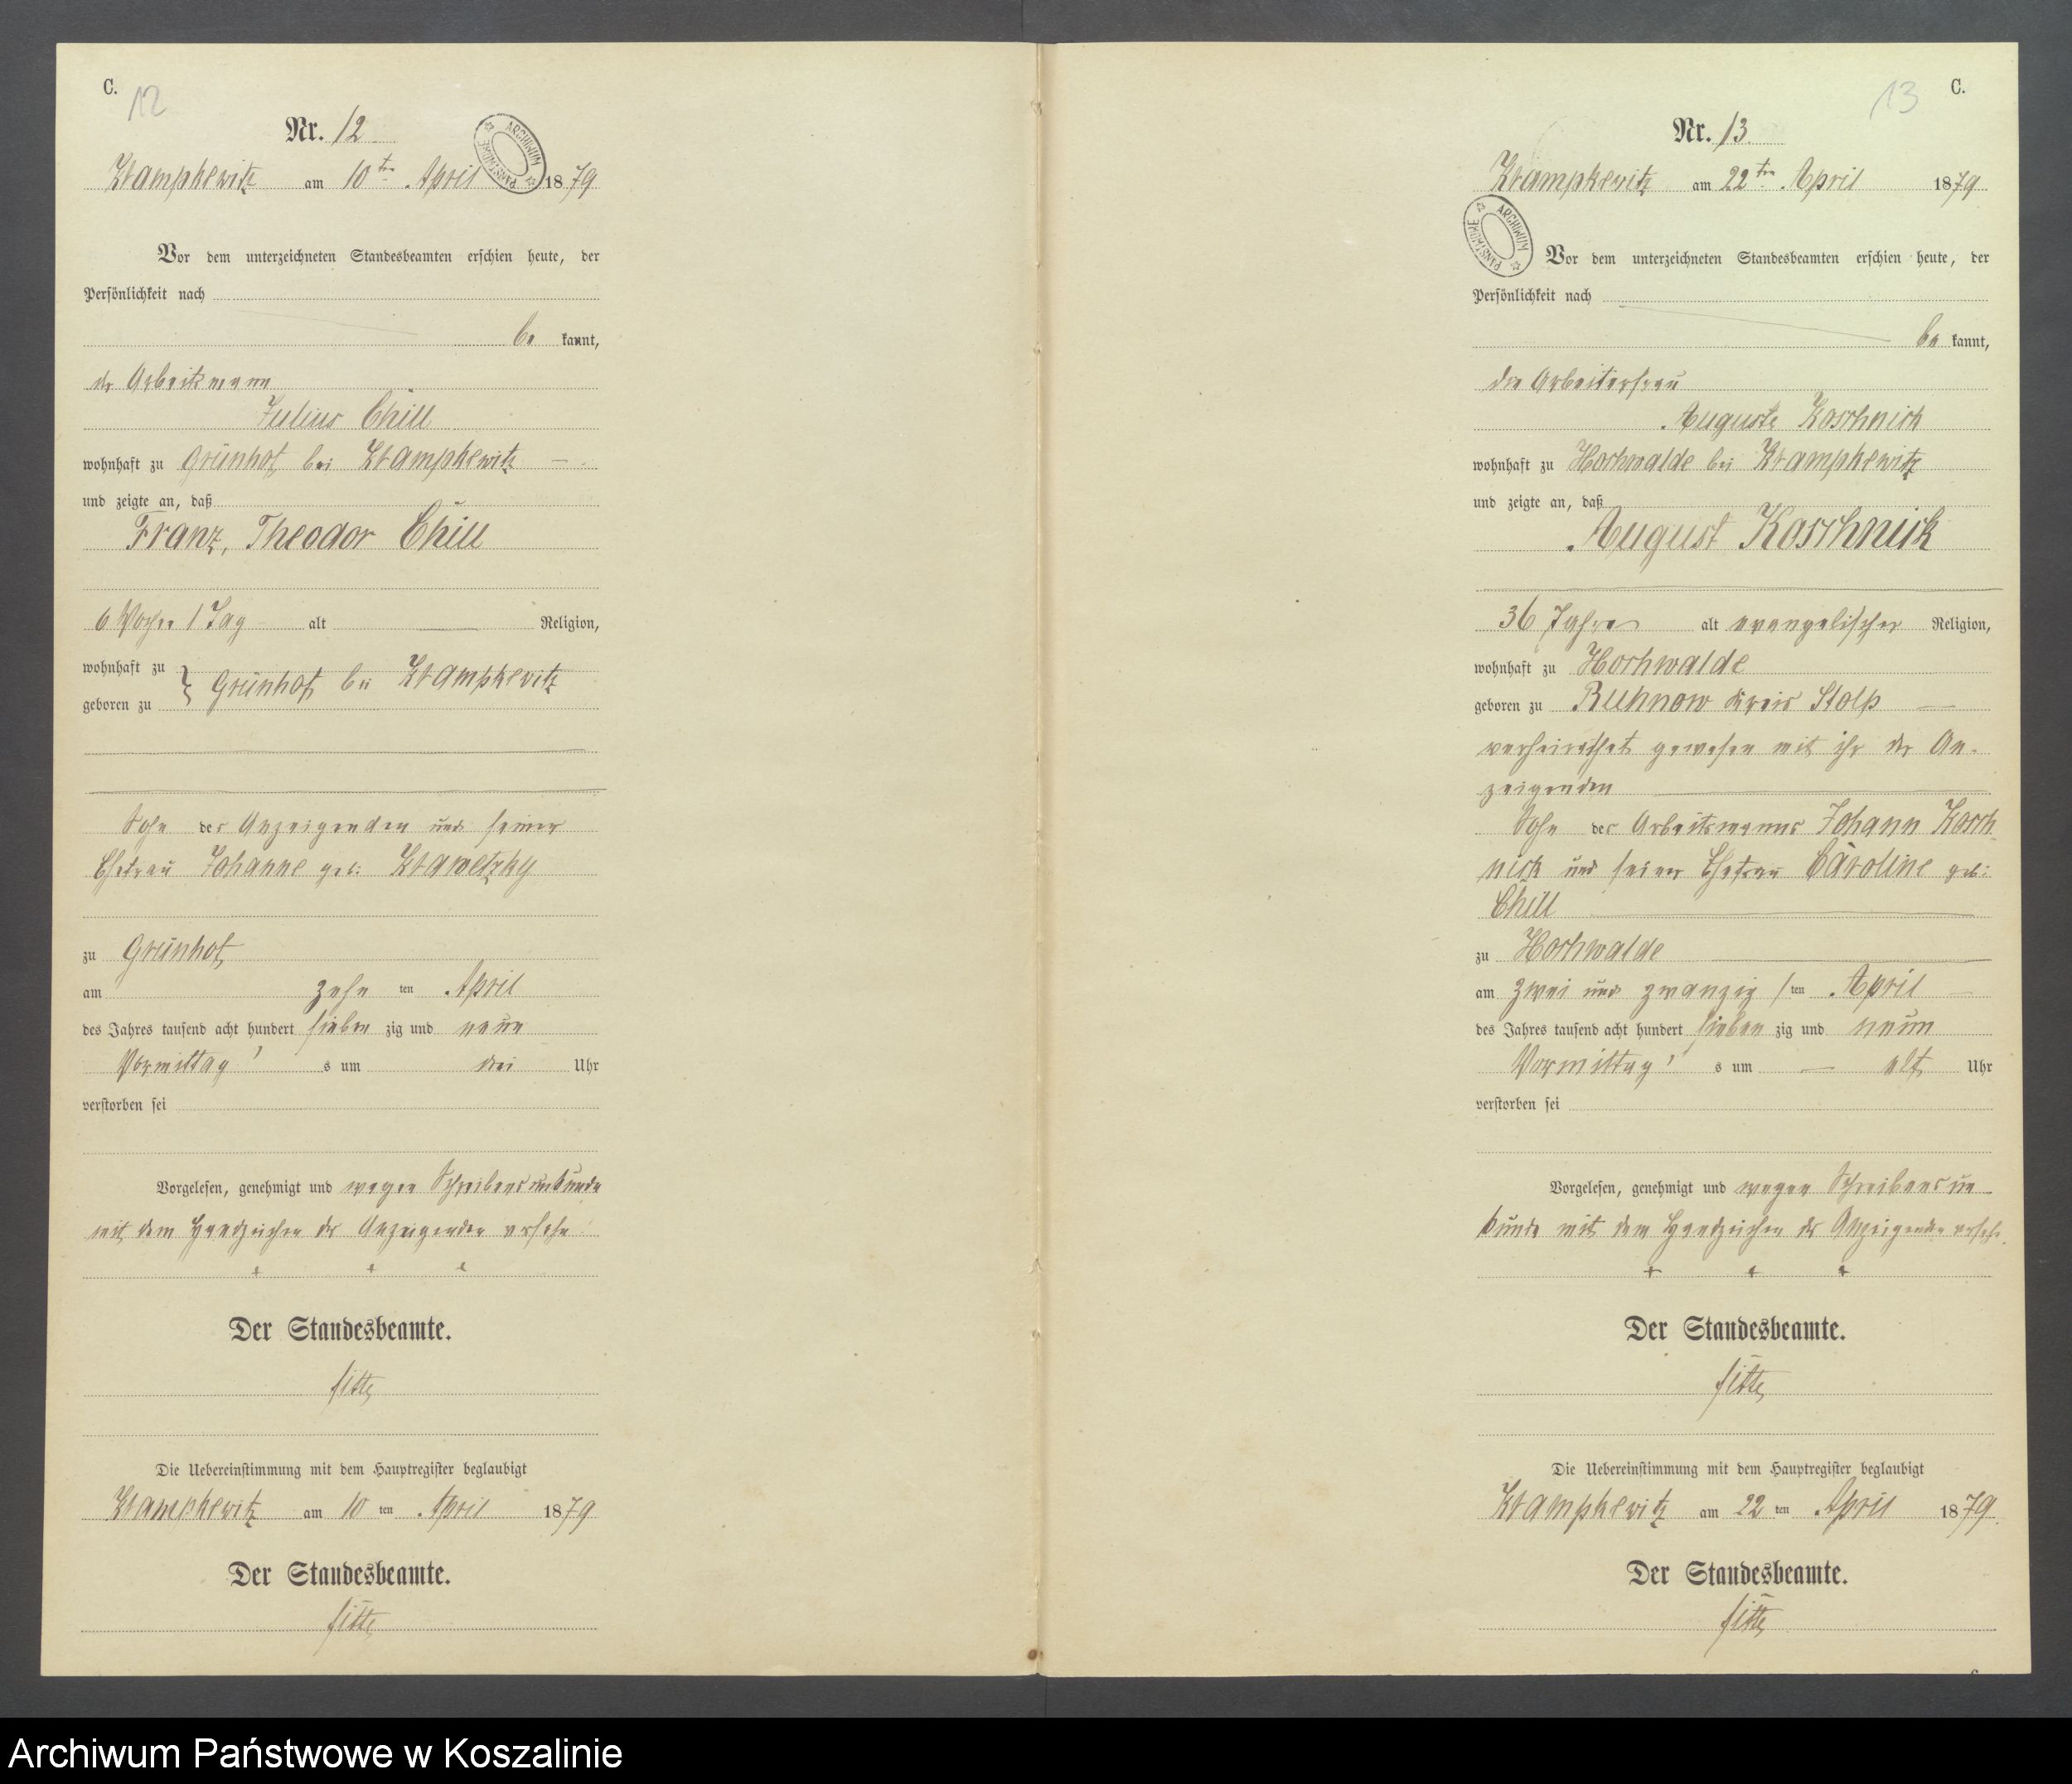 C.
12
Nr. 12
Krampkewitz am 10ten April 1879
ARCHIWUM PAŃSTWOWE
Vor dem unterzeichneten Standesbeamten erschien heute, der
Persönlichkeit nach
be kannt,
der Arbeitsmann
Julius Chill
wohnhaft zu Grünhof bei Krampkewitz —
und zeigte an, daß
Franz, Theodor Chill
6 Wochen 1 Tag alt — Religion,
wohnhaft zu
geboren zu } Grünhof bei Krampkewitz
Sohn des Anzeigenden und seiner
Ehefrau Johanne geb: Krawetzky
zu Grünhof,
am zehn ten April
des Jahres tausend acht hundert sieben zig und neun
Vormittag s um drei Uhr
verstorben sei
Vorgelesen, genehmigt und wegen Schreibensunkunde
mit dem Handzeichen des Anzeigenden versehn
+ + +
Der Standesbeamte.
Die Uebereinstimmung mit dem Hauptregister beglaubigt
Krampkewitz am 10 ten April 1879
Der Standesbeamte.
13
C.
Nr. 13.
Krampkewitz am 22ten April 1879
ARCHIWUM PAŃSTWOWE
Vor dem unterzeichneten Standesbeamten erschien heute, der
Persönlichkeit nach
be kannt,
die Arbeiterfrau
Auguste Koschnick
wohnhaft zu Hochwalde bei Krampkewitz
und zeigte an, daß
August Koschnick
36 Jahre alt evangelischer Religion,
wohnhaft zu Hochwalde
geboren zu Buhnow Kreis Stolp —
verheirathet gewesen mit ihr der An-
zeigenden
Sohn des Arbeitsmanns Johann Kosch
nick und seiner Ehefrau Caroline geb:
Chill
zu Hochwalde
am zwei und zwanzig /ten April
des Jahres tausend acht hundert sieben zig und neun
Vormittag s um — elf Uhr
verstorben sei
Vorgelesen, genehmigt und wegen Schreibensun-
kunde mit dem Handzeichen der Anzeigenden versehn.
+ + +
Der Standesbeamte.
Die Uebereinstimmung mit dem Hauptregister beglaubigt
Krampkewitz am 22 ten April 1879.
Der Standesbeamte.
Archiwum Państwowe w Koszalinie